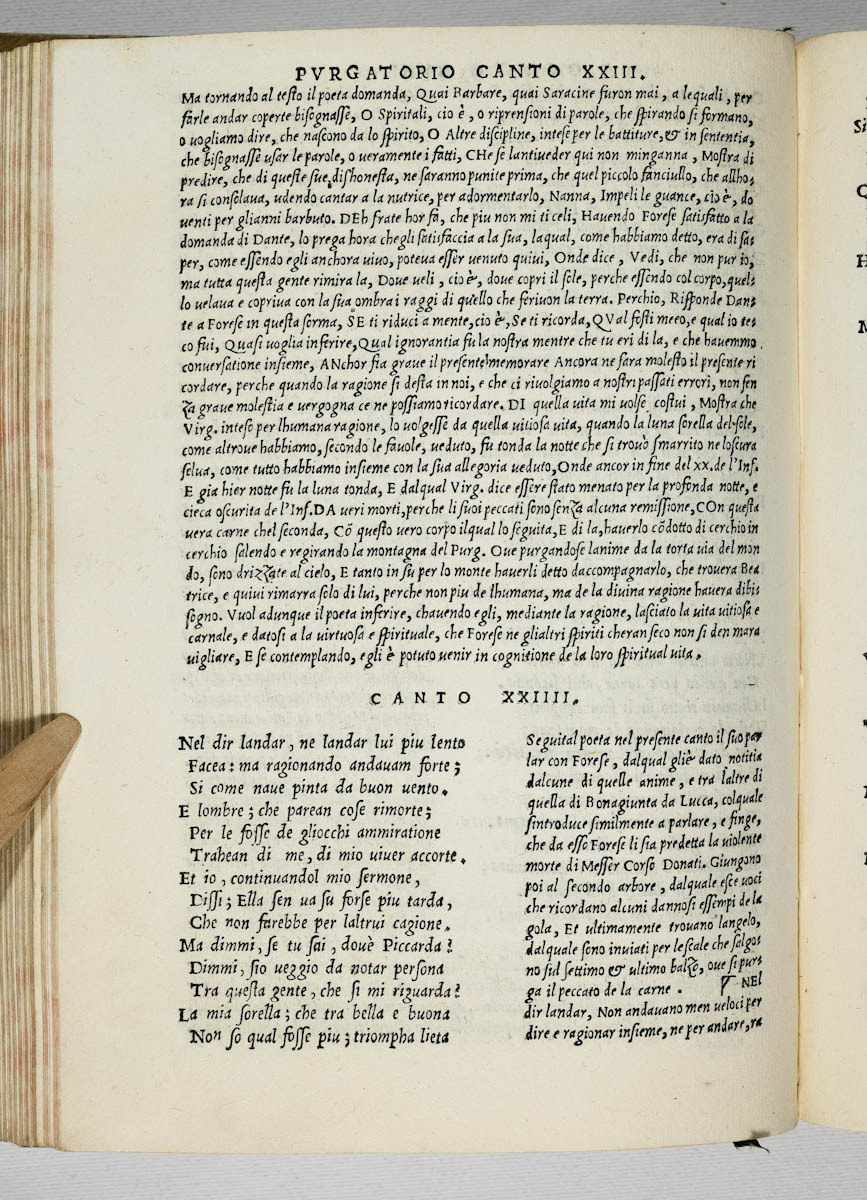 PVRGATORIO CANTO XXIII.
Ma tornando al teſto il poeta domanda, Quai Barbare, quai Saracine furon mai, a lequali, per
farle andar coperte biſognaſſe, O Spiritali, cio è, o riprenſioni di parole, che ſpirando ſi formano,
o uogliamo dire, che naſcono da lo ſpirito, O Altre diſcipline, inteſe per le battiture, & in ſententia,
che biſognaſſe uſar le parole, o ueramente i fatti, CHe ſe lantiueder qui non minganna, Moſtra di
predire, che di queſte ſue diſhoneſta, ne ſaranno punite prima, che quel piccolo fanciullo, che allho-
ra ſi conſolaua, udendo cantar a la nutrice, per adormentarlo, Nanna, Impeli le guance, cio è, do
uenti per glianni barbuto. DEh frate hor fa, che piu non mi ti celi, Hauendo Foreſe ſatisfatto a la
domanda di Dante, lo prega hora chegli ſatisfaccia a la ſua, laqual, come habbiamo detto, era di ſa-
per, come eſſendo egli anchora uiuo, poteua eſſer uenuto quiui, Onde dice, Vedi, che non pur io,
ma tutta queſta gente rimira la, Doue ueli, cio è, doue copri il ſole, perche eſſendo col corpo, quel-
lo uelaua e copriua con la ſua ombra i raggi di quello che feriuon la terra. Perchio, Riſponde Dan-
te a Foreſe in queſta forma, SE ti riduci a mente, cio è, Se ti ricorda, QVal foſti meco, e qual io te-
co fui, Quaſi uoglia inferire, Qual ignorantia fu la noſtra mentre che tu eri di la, e che hauemmo
conuerſatione inſieme, ANchor fia graue il preſente memorare Ancora ne ſara moleſto il preſente ri
cordare, perche quando la ragione ſi deſta in noi, e che ci riuolgiamo a noſtri paſſati errori, non ſen
za graue moleſtia e uergogna ce ne poſſiamo ricordare. DI quella uita mi uolſe coſtui, Moſtra che
Virg. inteſo per lhumana ragione, lo uolgeſſe da quella uitioſa uita, quando la luna ſorella del ſole,
come altroue habbiamo, ſecondo le fauole, ueduto, fu tonda la notte che ſi trouò ſmarrito ne loſcura
ſelua, come tutto habbiamo inſieme con la ſua allegoria ueduto, Onde ancor in fine del xx. de l'Inf.
E gia hier notte fu la luna tonda, E dalqual Virg. dice eſſere ſtato menato per la profonda notte, e
cieca oſcurita de l'Inf. DA ueri morti, perche li ſuoi peccati ſono ſenza alcuna remiſſione, COn queſta
uera carne chel ſeconda, Cõ queſto uero corpo ilqual lo ſeguita, E di la, hauerlo cõdotto di cerchio in
cerchio ſalendo e regirando la montagna del Purg. Oue purgandoſe lanime da la torta uia del mon
do, ſono drizzate al cielo, E tanto in ſu per lo monte hauerli detto daccompagnarlo, che trouera Bea
trice, e quiui rimarra ſolo di lui, perche non piu de lhumana, ma de la diuina ragione hauera dibi-
ſogno. Vuol adunque il poeta inferire, chauendo egli, mediante la ragione, laſciato la uita uitioſa e
carnale, e datoſi a la uirtuoſa e ſpirituale, che Foreſe ne glialtri ſpiriti cheran ſeco non ſi den mara
uigliare, E ſe contemplando, egli è potuto uenir in cognitione de la loro ſpiritual uita.
CANTO XXIIII.
Nel dir landar, ne landar lui piu lento
Facea: ma ragionando andauam forte;
Si come naue pinta da buon uento.
E lombre; che parean coſe rimorte;
Per le foſſe de gliocchi ammiratione
Trahean di me, di mio uiuer accorte.
Et io, continuandol mio ſermone,
Diſſi; Ella ſen ua ſu forſe piu tarda,
Che non farebbe per laltrui cagione.
Ma dimmi, ſe tu ſai, douè Piccarda?
Dimmi, ſio ueggio da notar perſona
Tra queſta gente, che ſi mi riguarda?
La mia ſorella; che tra bella e buona
Non ſo qual foſſe piu; triompha lieta
Seguital poeta nel preſente canto il ſuo par
lar con Foreſe, dalqual gliè dato notitia
dalcune di quelle anime, e tra laltre di
quella di Bonagiunta da Lucca, colquale
ſintroduce ſimilmente a parlare, e finge,
che da eſſo Foreſe li ſia predetta la uiolente
morte di Meſſer Corſo Donati. Giungono
poi al ſecondo arbore, dalquale eſce uoci
che ricordano alcuni dannoſi eſſempi de la
gola, Et ultimamente trouano langelo,
dalquale ſono inuiati per leſcale che ſalgo-
no ſul ſettimo & ultimo balzo, oue ſi pur-
ga il peccato de la carne. NEl
dir landar, Non andauano men ueloci per
dire e ragionar inſieme, ne per andare, ra